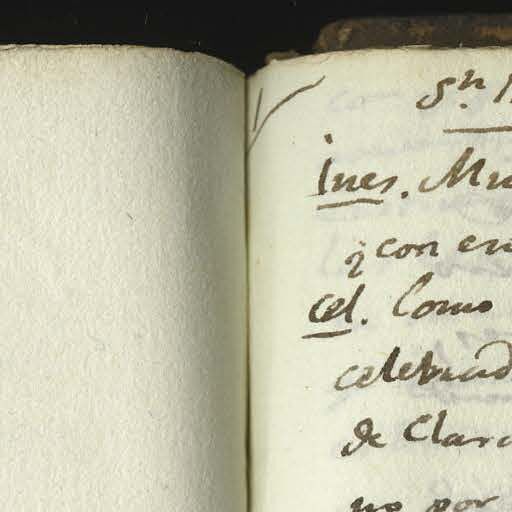 Sn.
Ines. Mu
q con en
Cel. Como
celebrad
de Clara
no por